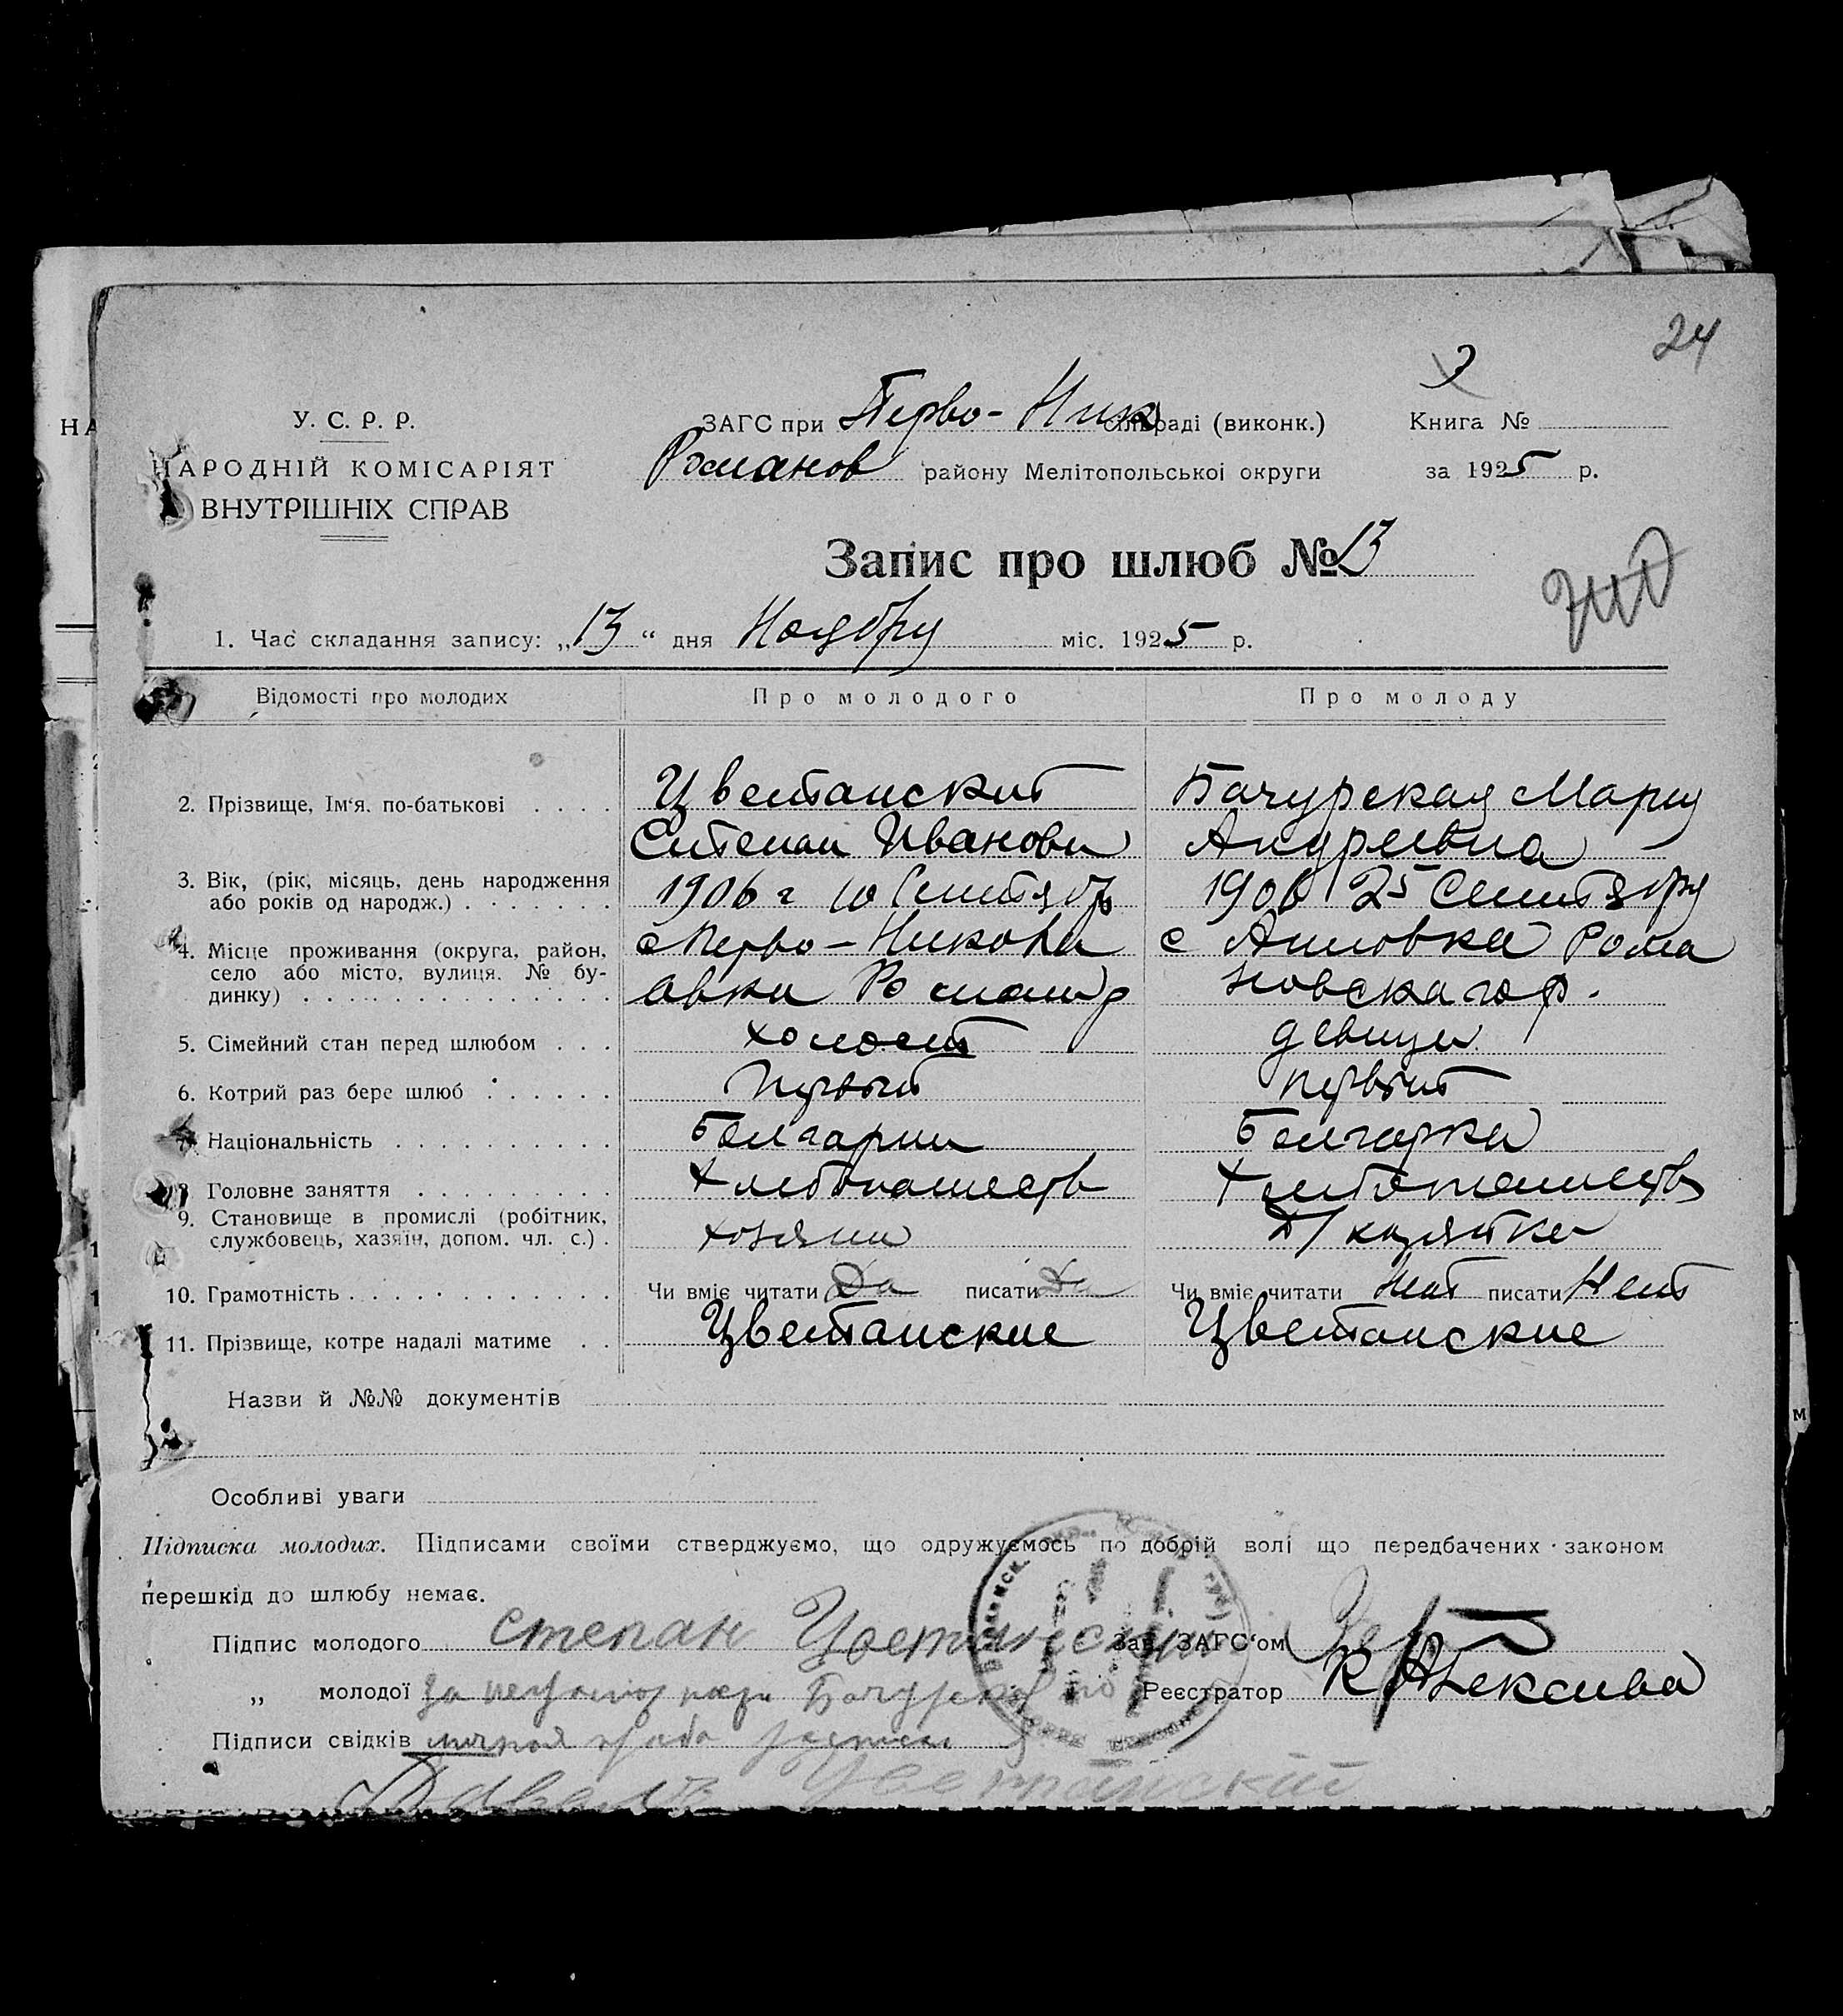 24
3
У. С. Р. Р.
НАРОДНІЙ КОМІСАРІЯТ
ВНУТРІШНІХ СПРАВ
ЗАГС при Перво-Ник сільраді (виконк.)
Книга №
Романов району Мелітопольської округи
за 1925 р.
Запис про шлюб № 13
1. Час складання запису: „13“ дня Ноября міс. 1925 р.
Відомості про молодих
Про молодого
Про молоду
2. Прізвище, Ім'я. по-батькові
Цветанский
Ситепан Иванови
Бачурская Мария
Андреевна
3. Вік, (рік, місяць, день народження
або років од народж.)
1906 г 10 Сентябр
1906 25 Сентября
4. Місце проживання (округа, район,
село або місто, вулиця. № бу-
динку)
с Перво-Никола
авка Романр
с Анновка Рома
новскагор.
5. Сімейний стан перед шлюбом
холост
девица
6. Котрий раз бере шлюб
первый
первый
7. Національність
Болгарин
Болгарка
8. Головне заняття
Хлебопашеств
Хлебопашеств
9. Становище в промислі (робітник,
службовець, хазяїн, допом. чл. с.)
хозяин
Д/ хозяйка
10. Грамотність
Чи вміє читати Да писати Да
Чи вміє читати Нет писати Нет
11. Прізвище, котре надалі матиме
Цветанские
Цветанские
Назви й №№ документів
Особливі уваги
Підписка молодих. Підписами своїми стверджуємо, що одружуємось по добрій волі що передбачених законом
перешкід до шлюбу немає.
Підпис молодого степан Цветанский
Зав. ЗАГС'ом
„ молодої За неграмот Бачурско
Реєстратор
Підписи свідків
Цветанский